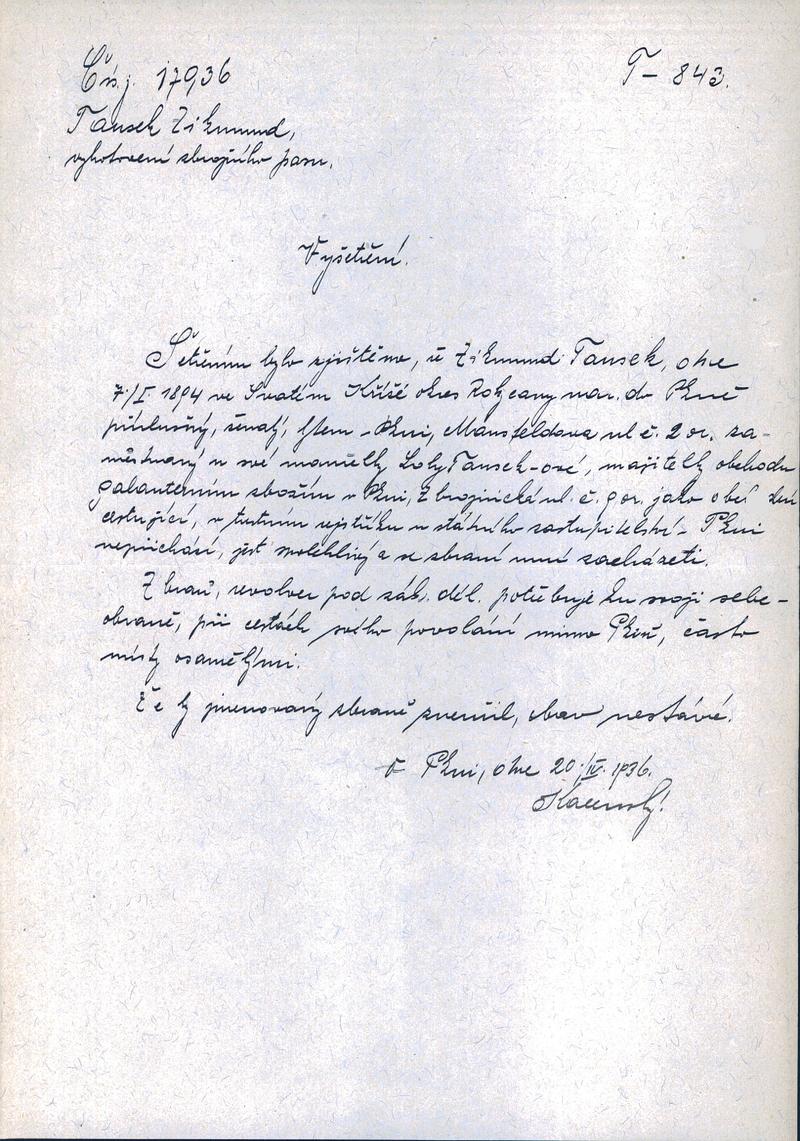 Čís.j. 17936
T- 843.
Tausek Zikmund,
vyhotovení zbrojního pasu.
Vyšetření.
Šetřením bylo zjištěno, že Zikmund Tausek, dne
7./I. 1894 ve Svatém Kříži okres Rokycany nar. do Plzně
příslušný, ženatý, bytem - Plzni, Mansfeldova ul č. 2 or. za-
městnaný u své manželky Loly Tausek-ové, majitelky obchodu
galanterním zbožím v Plzni, Zbrojnická ul. č. 9 or. jako obch
cestující, v trestním rejstříku u státního zastupitelství - Plzni
nepřichází, jest spolehlivý a se zbraní umí zacházeti.
Zbraň, revolver pod zák. dél. potřebuje ku svoji sebe-
obraně, při cestách svého povolání mimo Plzeň, často
místy osamělými.
Že by jmenovaný zbraně zneužil, obav nestává.
V Plzni, dne 20./IV. 1936.